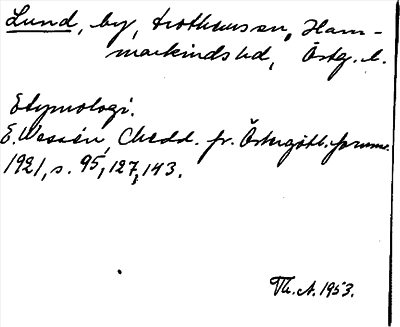 Lund, by, Trothemssn, Ham-
markinds hd, Östg. l.
Etymologi.
E. Wessén, Medd. fr. Östergötl. fornm.
1921, s. 95, 127, 143.
Th. A. 1953.